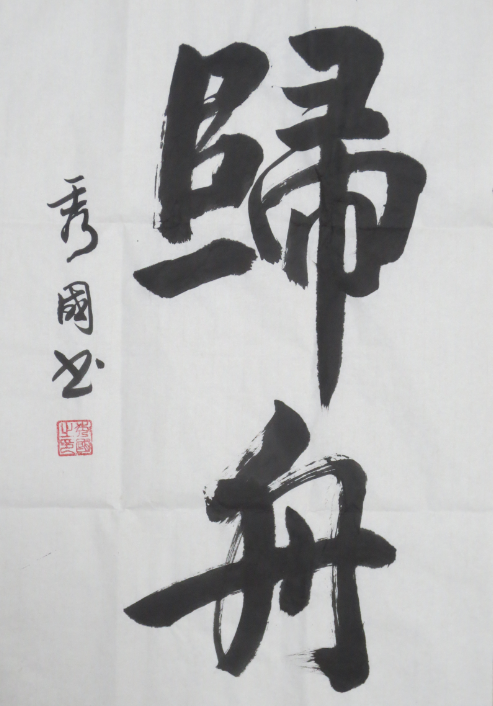 歸舟
秀國书